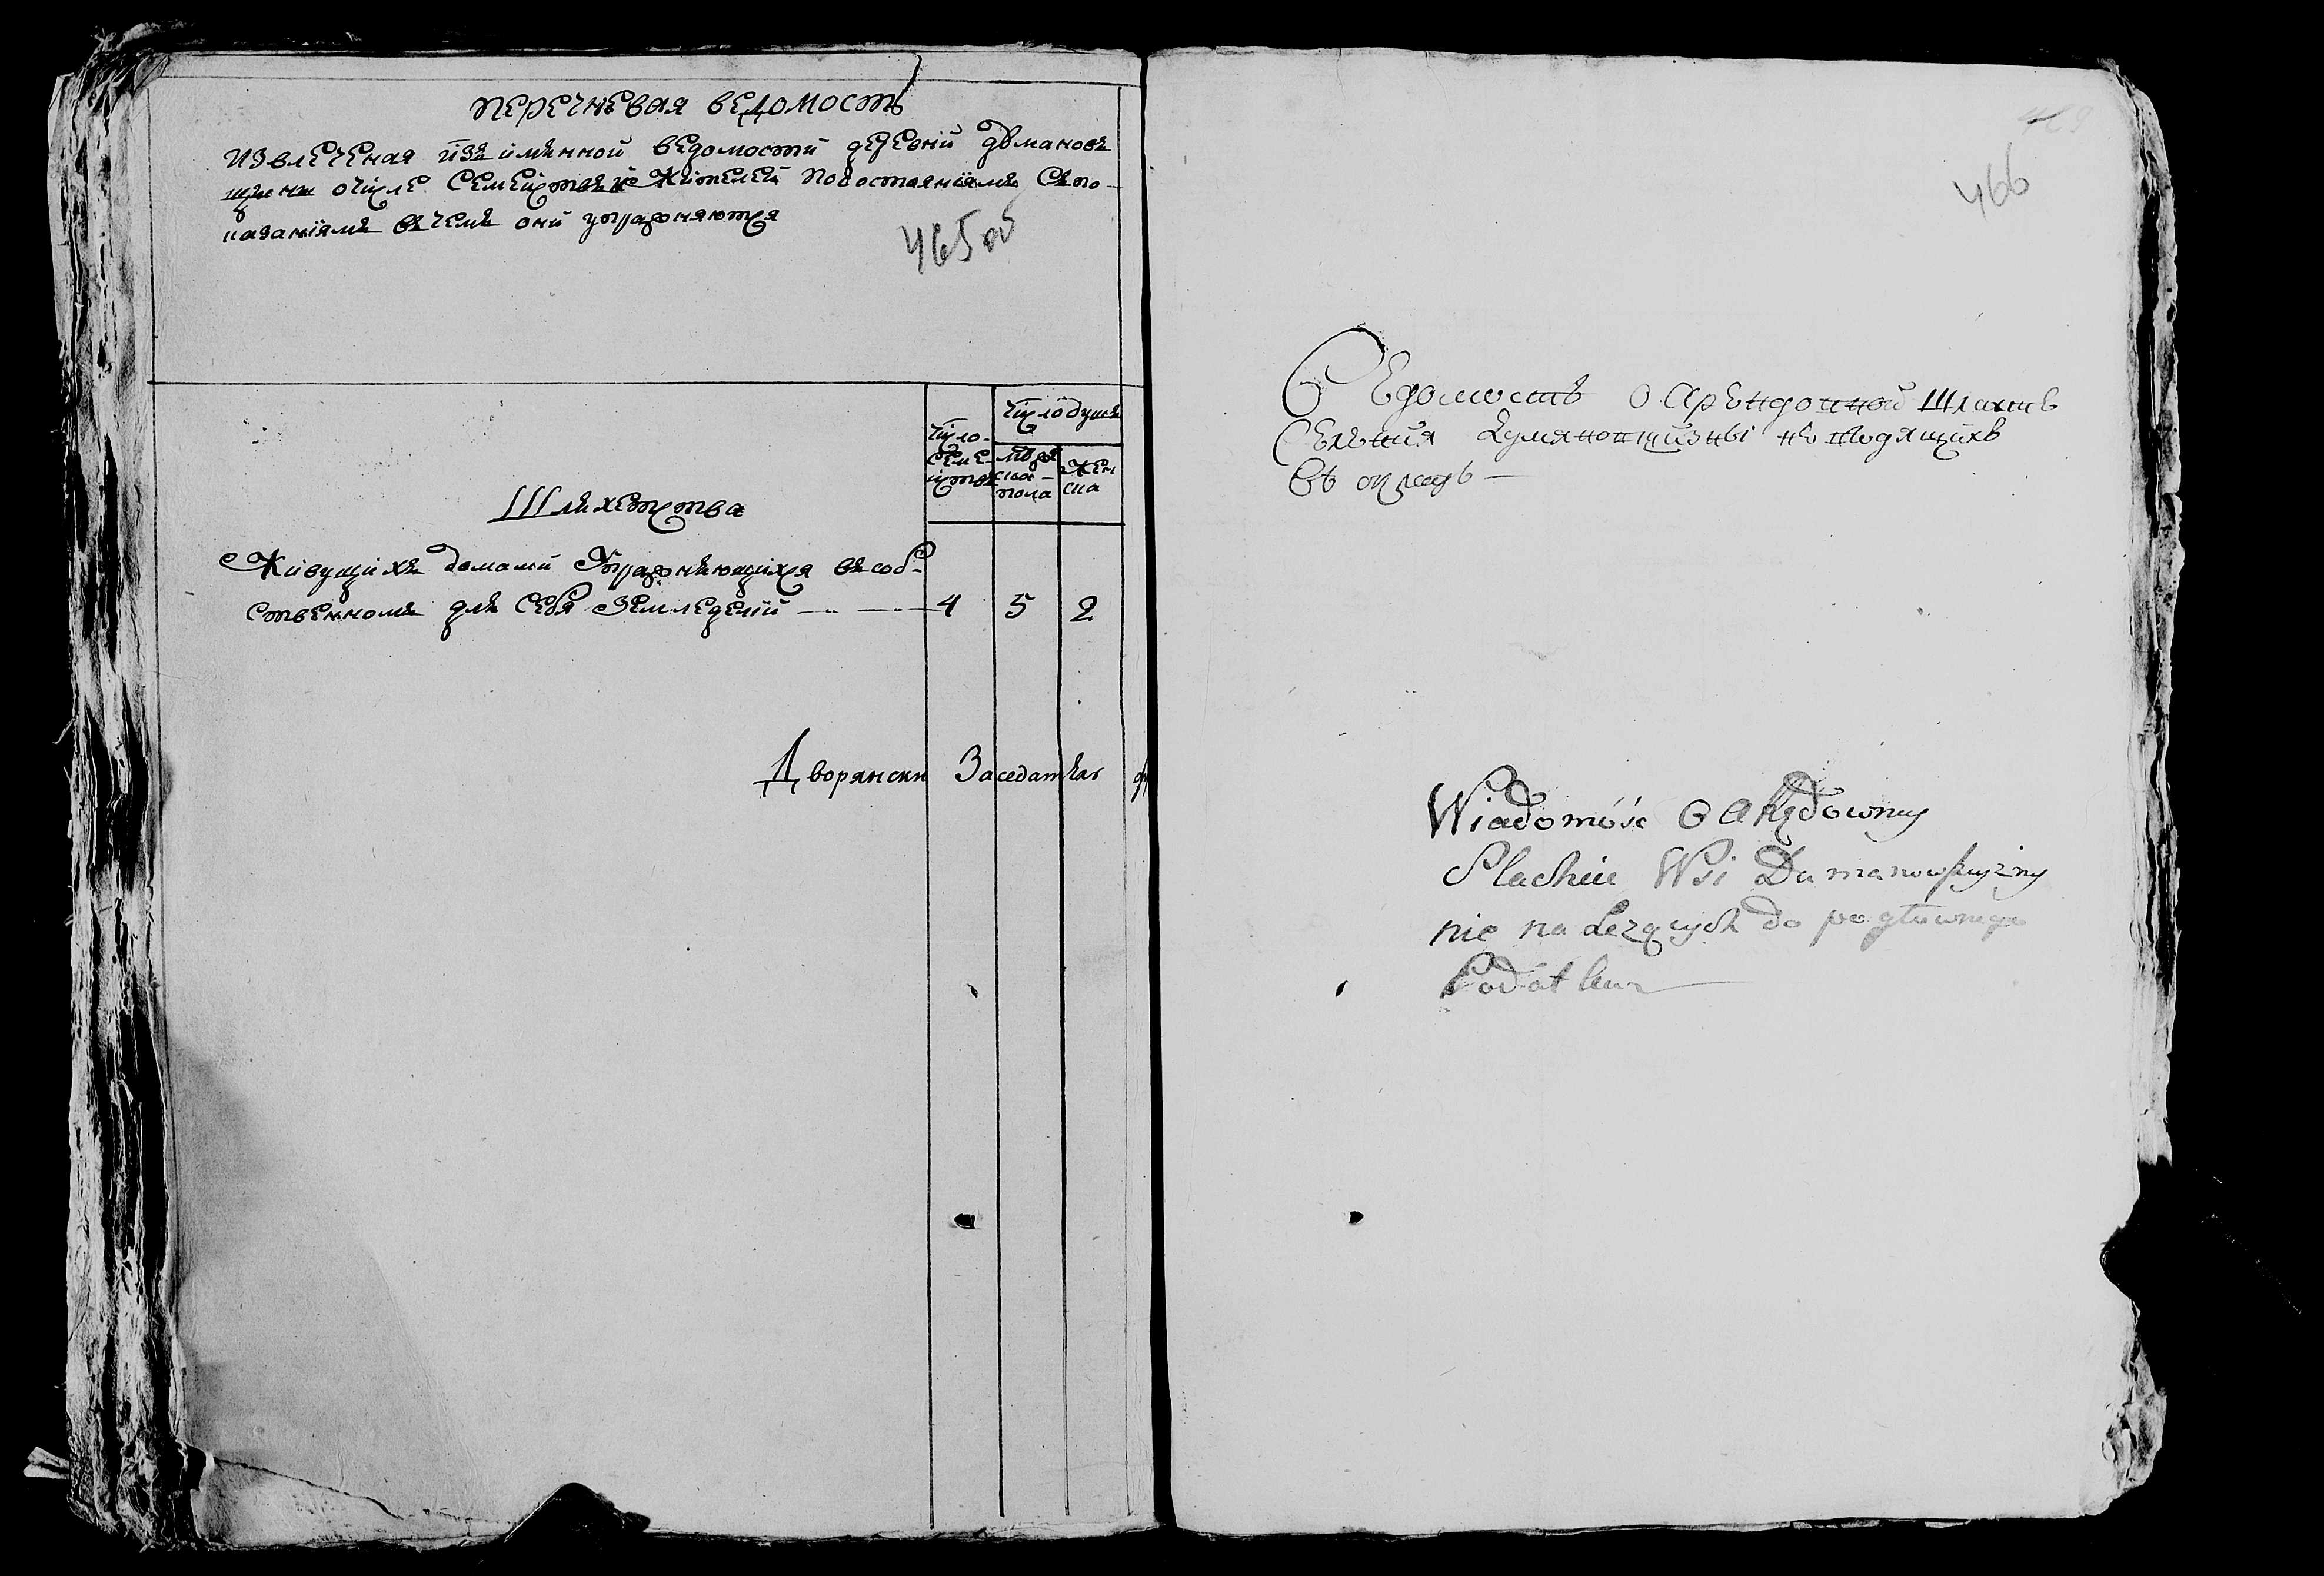 перечневая ведомостъ
извлеченая изъ имѣнной ведомости деревни думановъ
щизни очисле семействъ и жителей посостояниямъ съпо-
казаниямъ въчемъ они упражняются
465 об
число-
семе-
иствъ
число душъ
муже
ска-
пола
жен
ска
Шляхетства
Живущихъ домами Упражняющихся въсоб-
ственномъ для себя Земледелии 4 5 2
Дворянски Заседатель
466
Ведомость о Арендовной шляхтѣ
Селения Думановщизны не входящихъ
въ окладъ
Wiadomość O Arędowney
Slachcie Wsi Dumanowszyzny
nie należących do pogłównego
Podatku